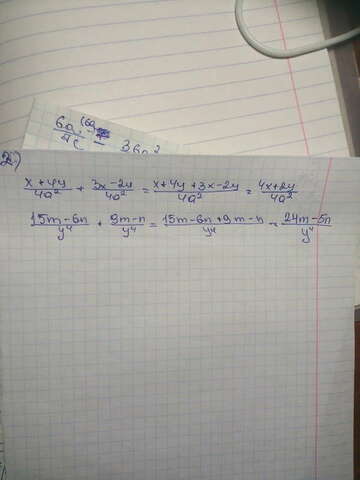 6a
4c
36a²
2)
(x+4y)/(4a²) + (3x-2y)/(4a²) = (x+4y+3x-2y)/(4a²) = (4x+2y)/(4a²)
(15m-6n)/(y⁴) + (9m-n)/(y⁴) = (15m-6n+9m-n)/(y⁴) = (24m-5n)/(y⁴)